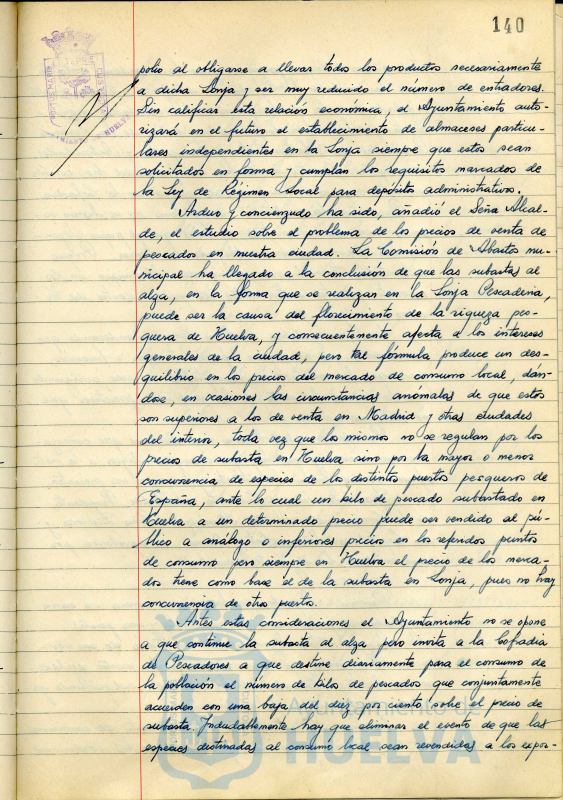 140
polio al obligarse a llevar todos los productos necesariamente
a dicha Lonja y ser muy reducido el número de entradores.
Sin calificar esta relación económica, el Ayuntamiento auto-
rizará en el futuro el establecimiento de almacenes particu-
lares independientes en la Lonja siempre que estos sean
solicitados en forma y cumplan los requisitos marcados de
la Ley de Régimen Local para depósito administrativo.
Arduo y concienzudo ha sido, añadió el Señor Alcal-
de, el estudio sobre el problema de los precios de venta de
pescados en nuestra ciudad. La Comisión de Abastos mu-
nicipal ha llegado a la conclusión de que las subastas al
alza, en la forma que se realizan en la Lonja Pescadería,
puede ser la causa del florecimiento de la riqueza pes-
quera de Huelva, y consecuentemente afecta a los intereses
generales de la ciudad, pero tal fórmula produce un des-
quilibrio en los precios del mercado de consumo local, dán-
dose, en ocasiones las circunstancias anómalas de que estos
son superiores a los de venta en Madrid y otras ciudades
del interior, toda vez que los mismos no se regulan por los
precios de subasta en Huelva sino por la mayor o menor
concurrencia de especies de los distintos puertos pesqueros de
España, ante lo cual un kilo de pescado subastado en
Huelva a un determinado precio puede ser vendido al pú-
blico a análogo o inferiores precios en los referidos puntos
de consumo pero siempre en Huelva el precio de los merca-
dos tiene como base el de la subasta en Lonja, pues no hay
concurrencia de otros puertos.
Antes estas consideraciones el Ayuntamiento no se opone
a que continúe la subasta al alza pero invita a la Cofradía
de Pescadores a que destine diariamente para el consumo de
la población el número de kilos de pescados que conjuntamente
acuerden con una baja del diez por ciento sobre el precio de
subasta. Indudablemente hay que eliminar el evento de que las
especies destinadas al consumo local sean revendidas a los expor-
HUELVA